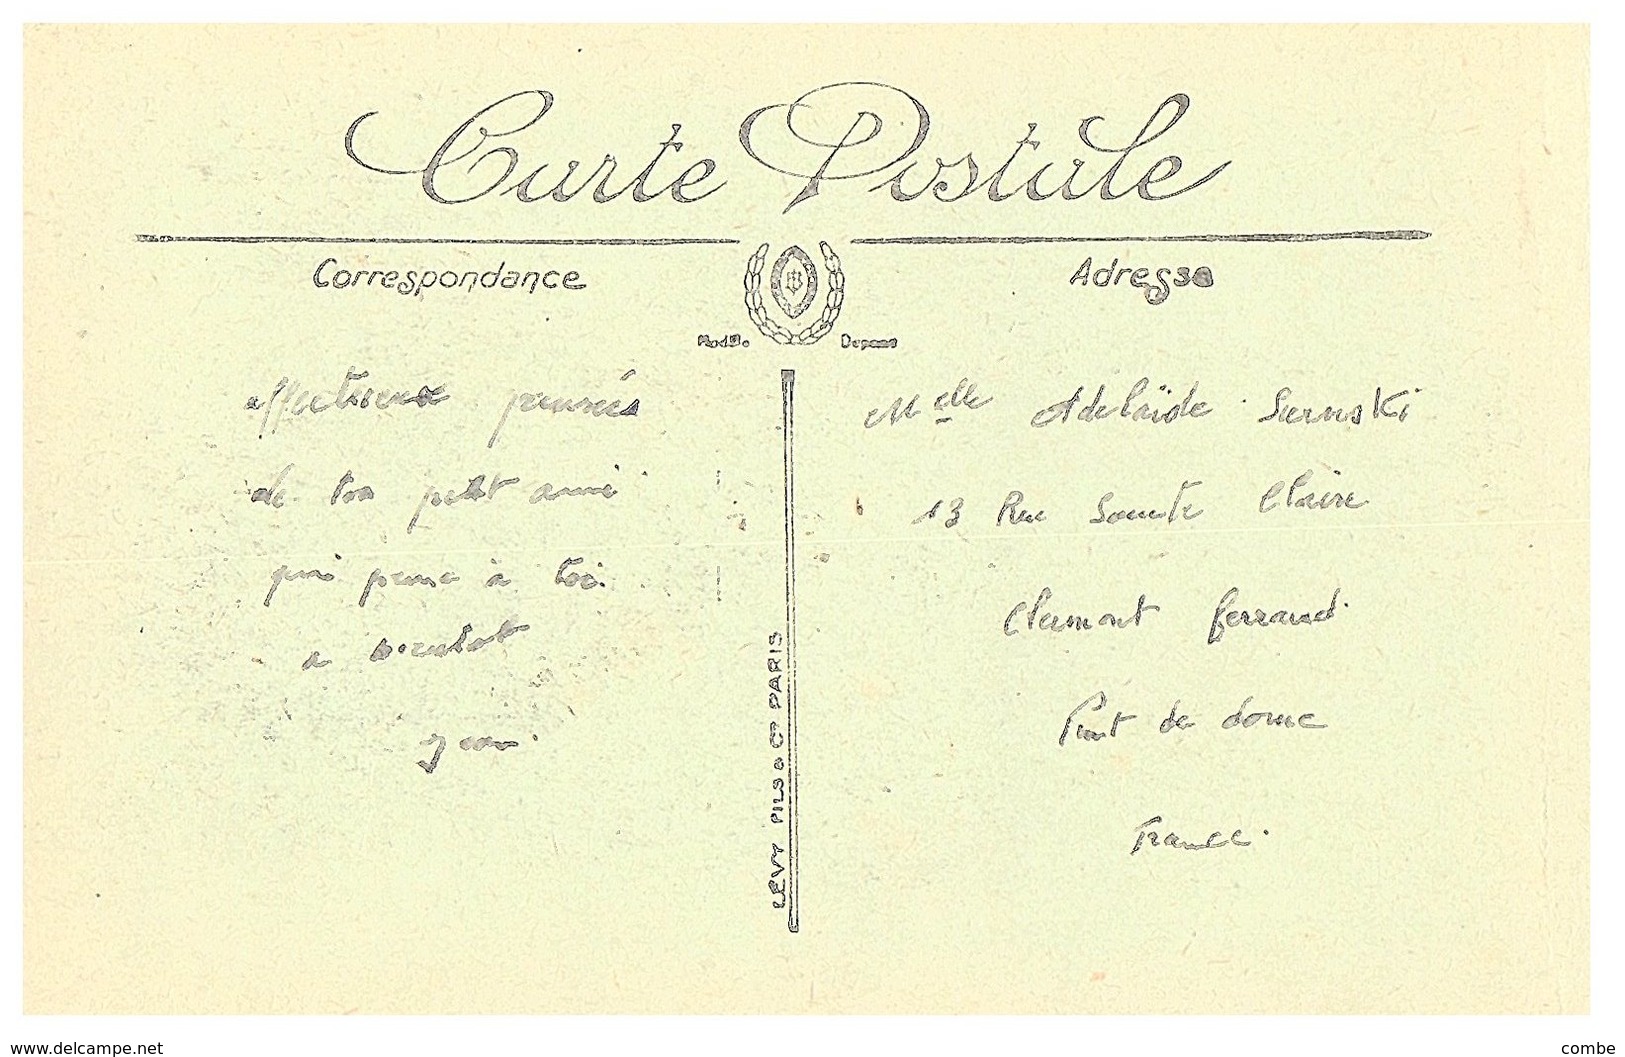 Carte Postale
Correspondance
Adresse
affectueux pensées
de ton petit ami
qui pense à toi.
a bientot
Jean.
Melle Adelaïde
13 Rue Sainte Claire
Clermont ferrand.
Puit de dome
France.
LÉVY FILS & Cie PARIS
www.delcampe.net
combe